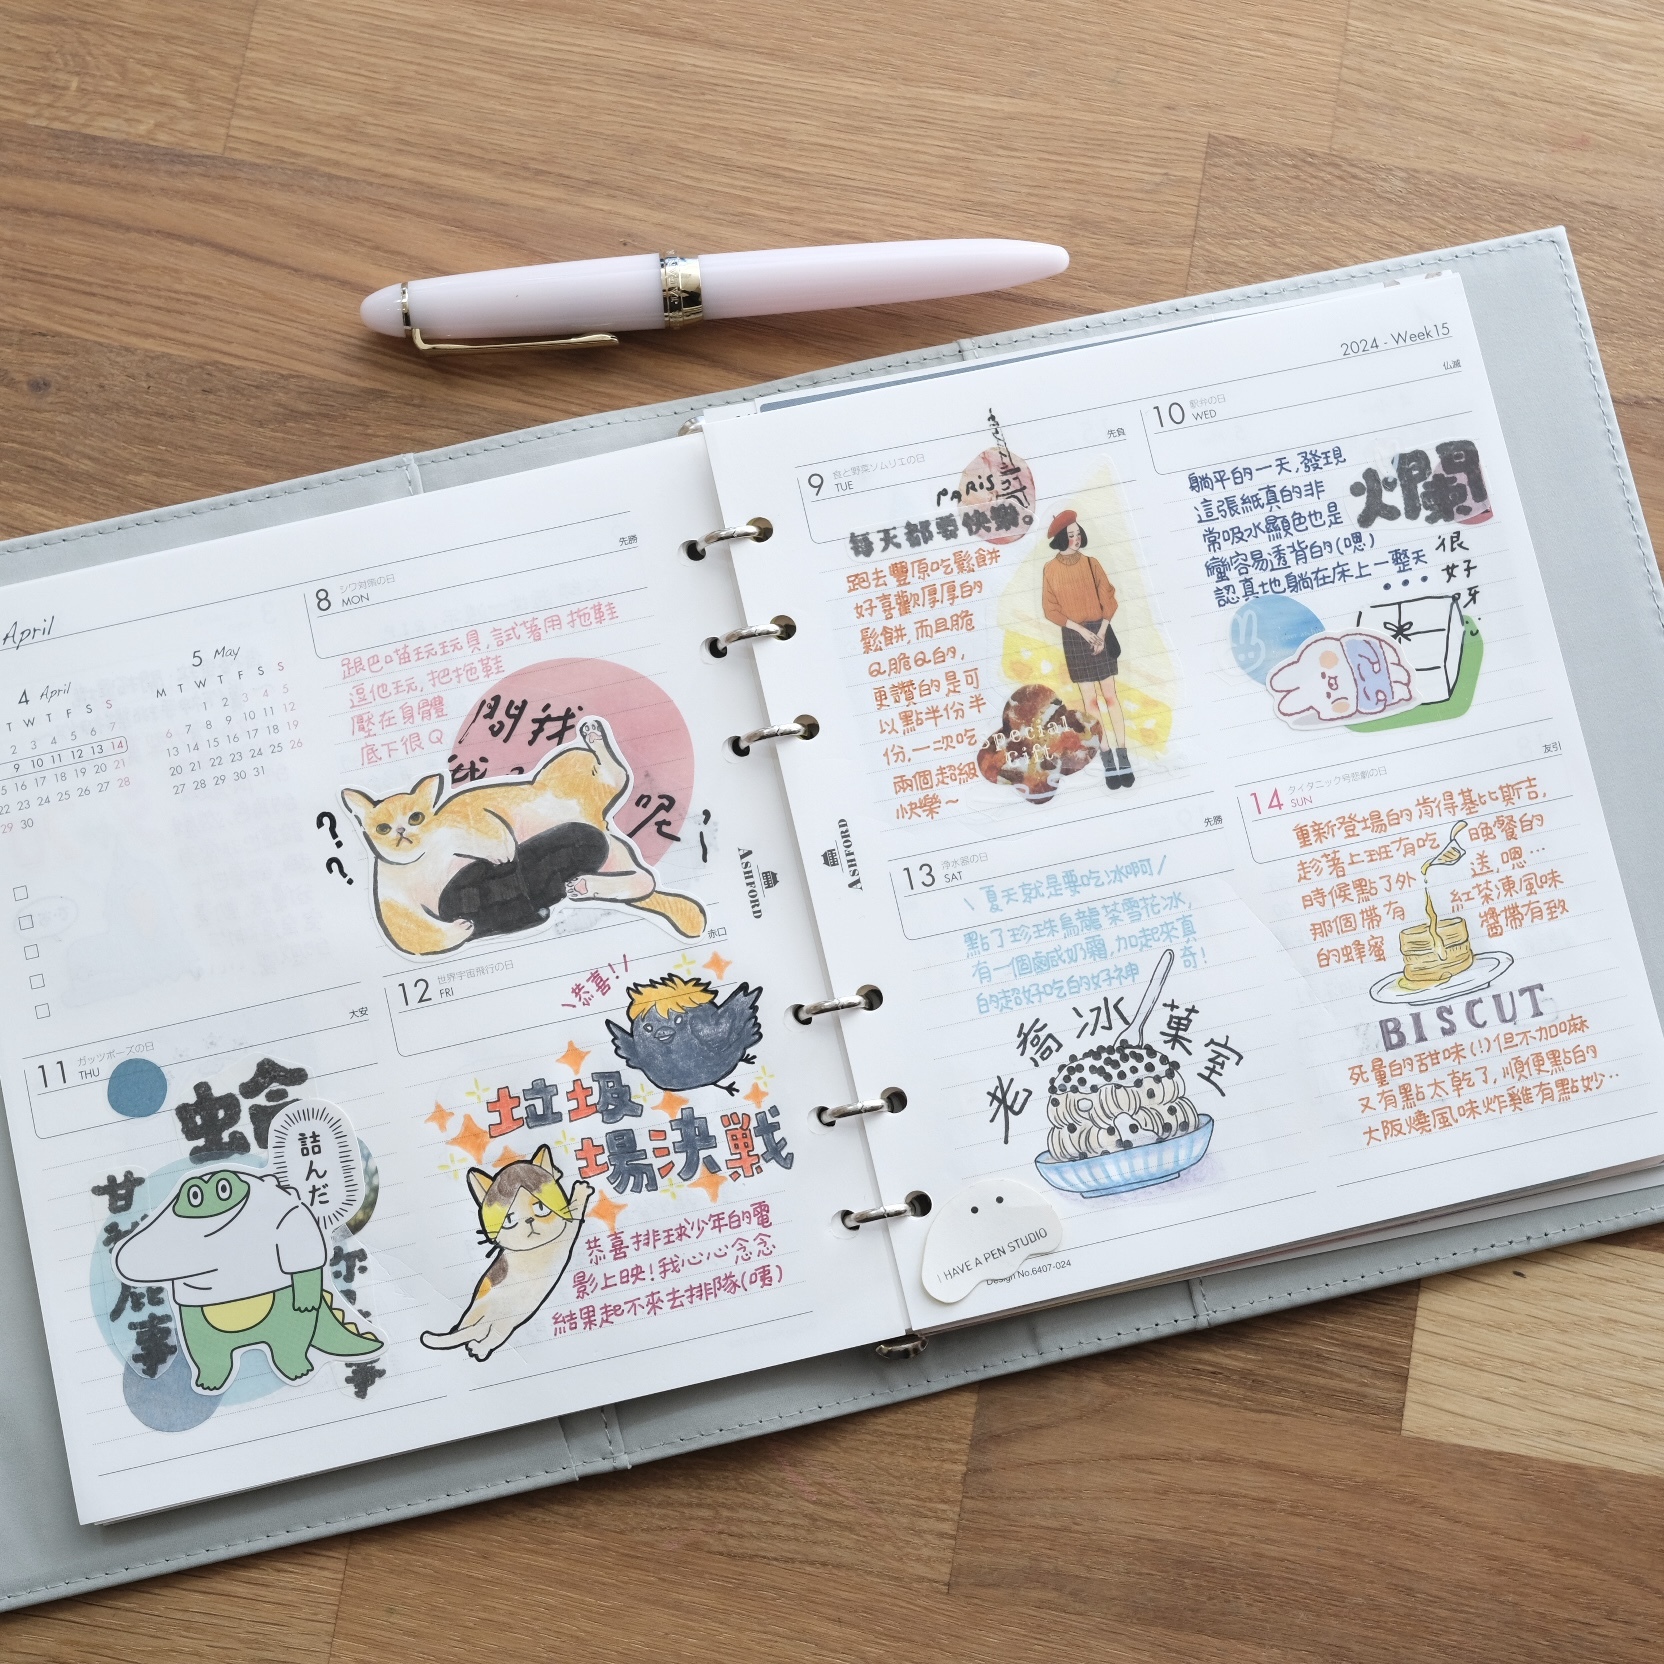 April
4 April
T W T F S S
2 3 4 5 6 7
9 10 11 12 13 14
16 17 18 19 20 21
22 23 24 25 26 27 28
29 30
5 May
M T W T F S S
1 2 3 4 5
6 7 8 9 10 11 12
13 14 15 16 17 18 19
20 21 22 23 24 25 26
27 28 29 30 31
8 MON
先勝
跟巴喵玩玩具,試著用拖鞋
逗他玩,把拖鞋
壓在身體
底下很Q
關我
呢
??
ASHFORD
11 ガッツポーズの日
THU
大安
蛤
詰んだ
甘
屁
事
12 世界宇宙飛行の日
FRI
赤口
\恭喜!!/
垃圾
場決戰
恭喜排球少年的電
影上映!我心心念念
結果起不來去排隊(咦)
2024 - Week15
9 食と野菜ソムリエの日
TUE
先負
PARIS
每天都要快樂。
跑去豐原吃鬆餅
好喜歡厚厚的
鬆餅,而且脆
Q脆Q的,
更讚的是可
以點半份半
份,一次吃
兩個超級
快樂~
Special
Gift
ASHFORD
10 駅弁の日
WED
仏滅
躺平的一天,發現
這張紙真的非
常吸水顯色也是
蠻容易透背的(嗯)
認真地躺在床上一整天
...
爛
很
好
牙
13 浄水器の日
SAT
先勝
\夏天就是要吃冰啊/
點了珍珠烏龍茶雪花冰,
有一個鹹奶霜,加起來真
的超好吃的好神奇!
老喬冰菓室
I HAVE A PEN STUDIO
Design No.6407-024
14 タイタニック号悲劇の日
SUN
友引
重新登場的肯得基比斯吉,
趁著上班有吃晚餐的
時候點了外送 嗯...
那個帶有紅茶凍風味
的蜂蜜醬帶有致
BISCUT
死量的甜味(!)但不加嘛
又有點太乾了,順便點的
大阪燒風味炸雞有點妙..